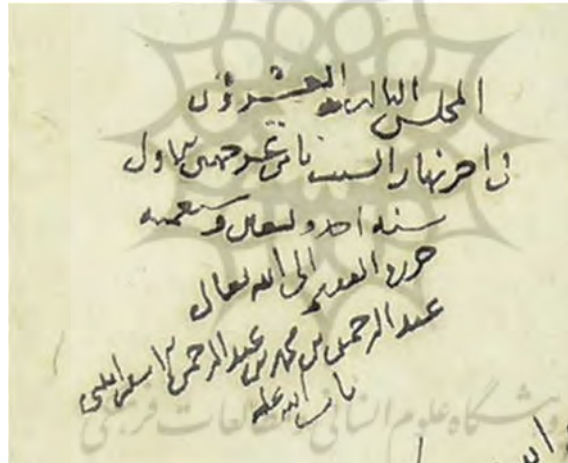 المجلس الثالث والعشرون
في اخر نهار السبت عشر جمادى الاول
سنه احد وتسعين
حرره الفقير الى الله تعالى
عبد الرحمن بن محمد بن عبد الرحمن بن
تاب الله عليه
علوم انسانی و مطالعات فرهنگی